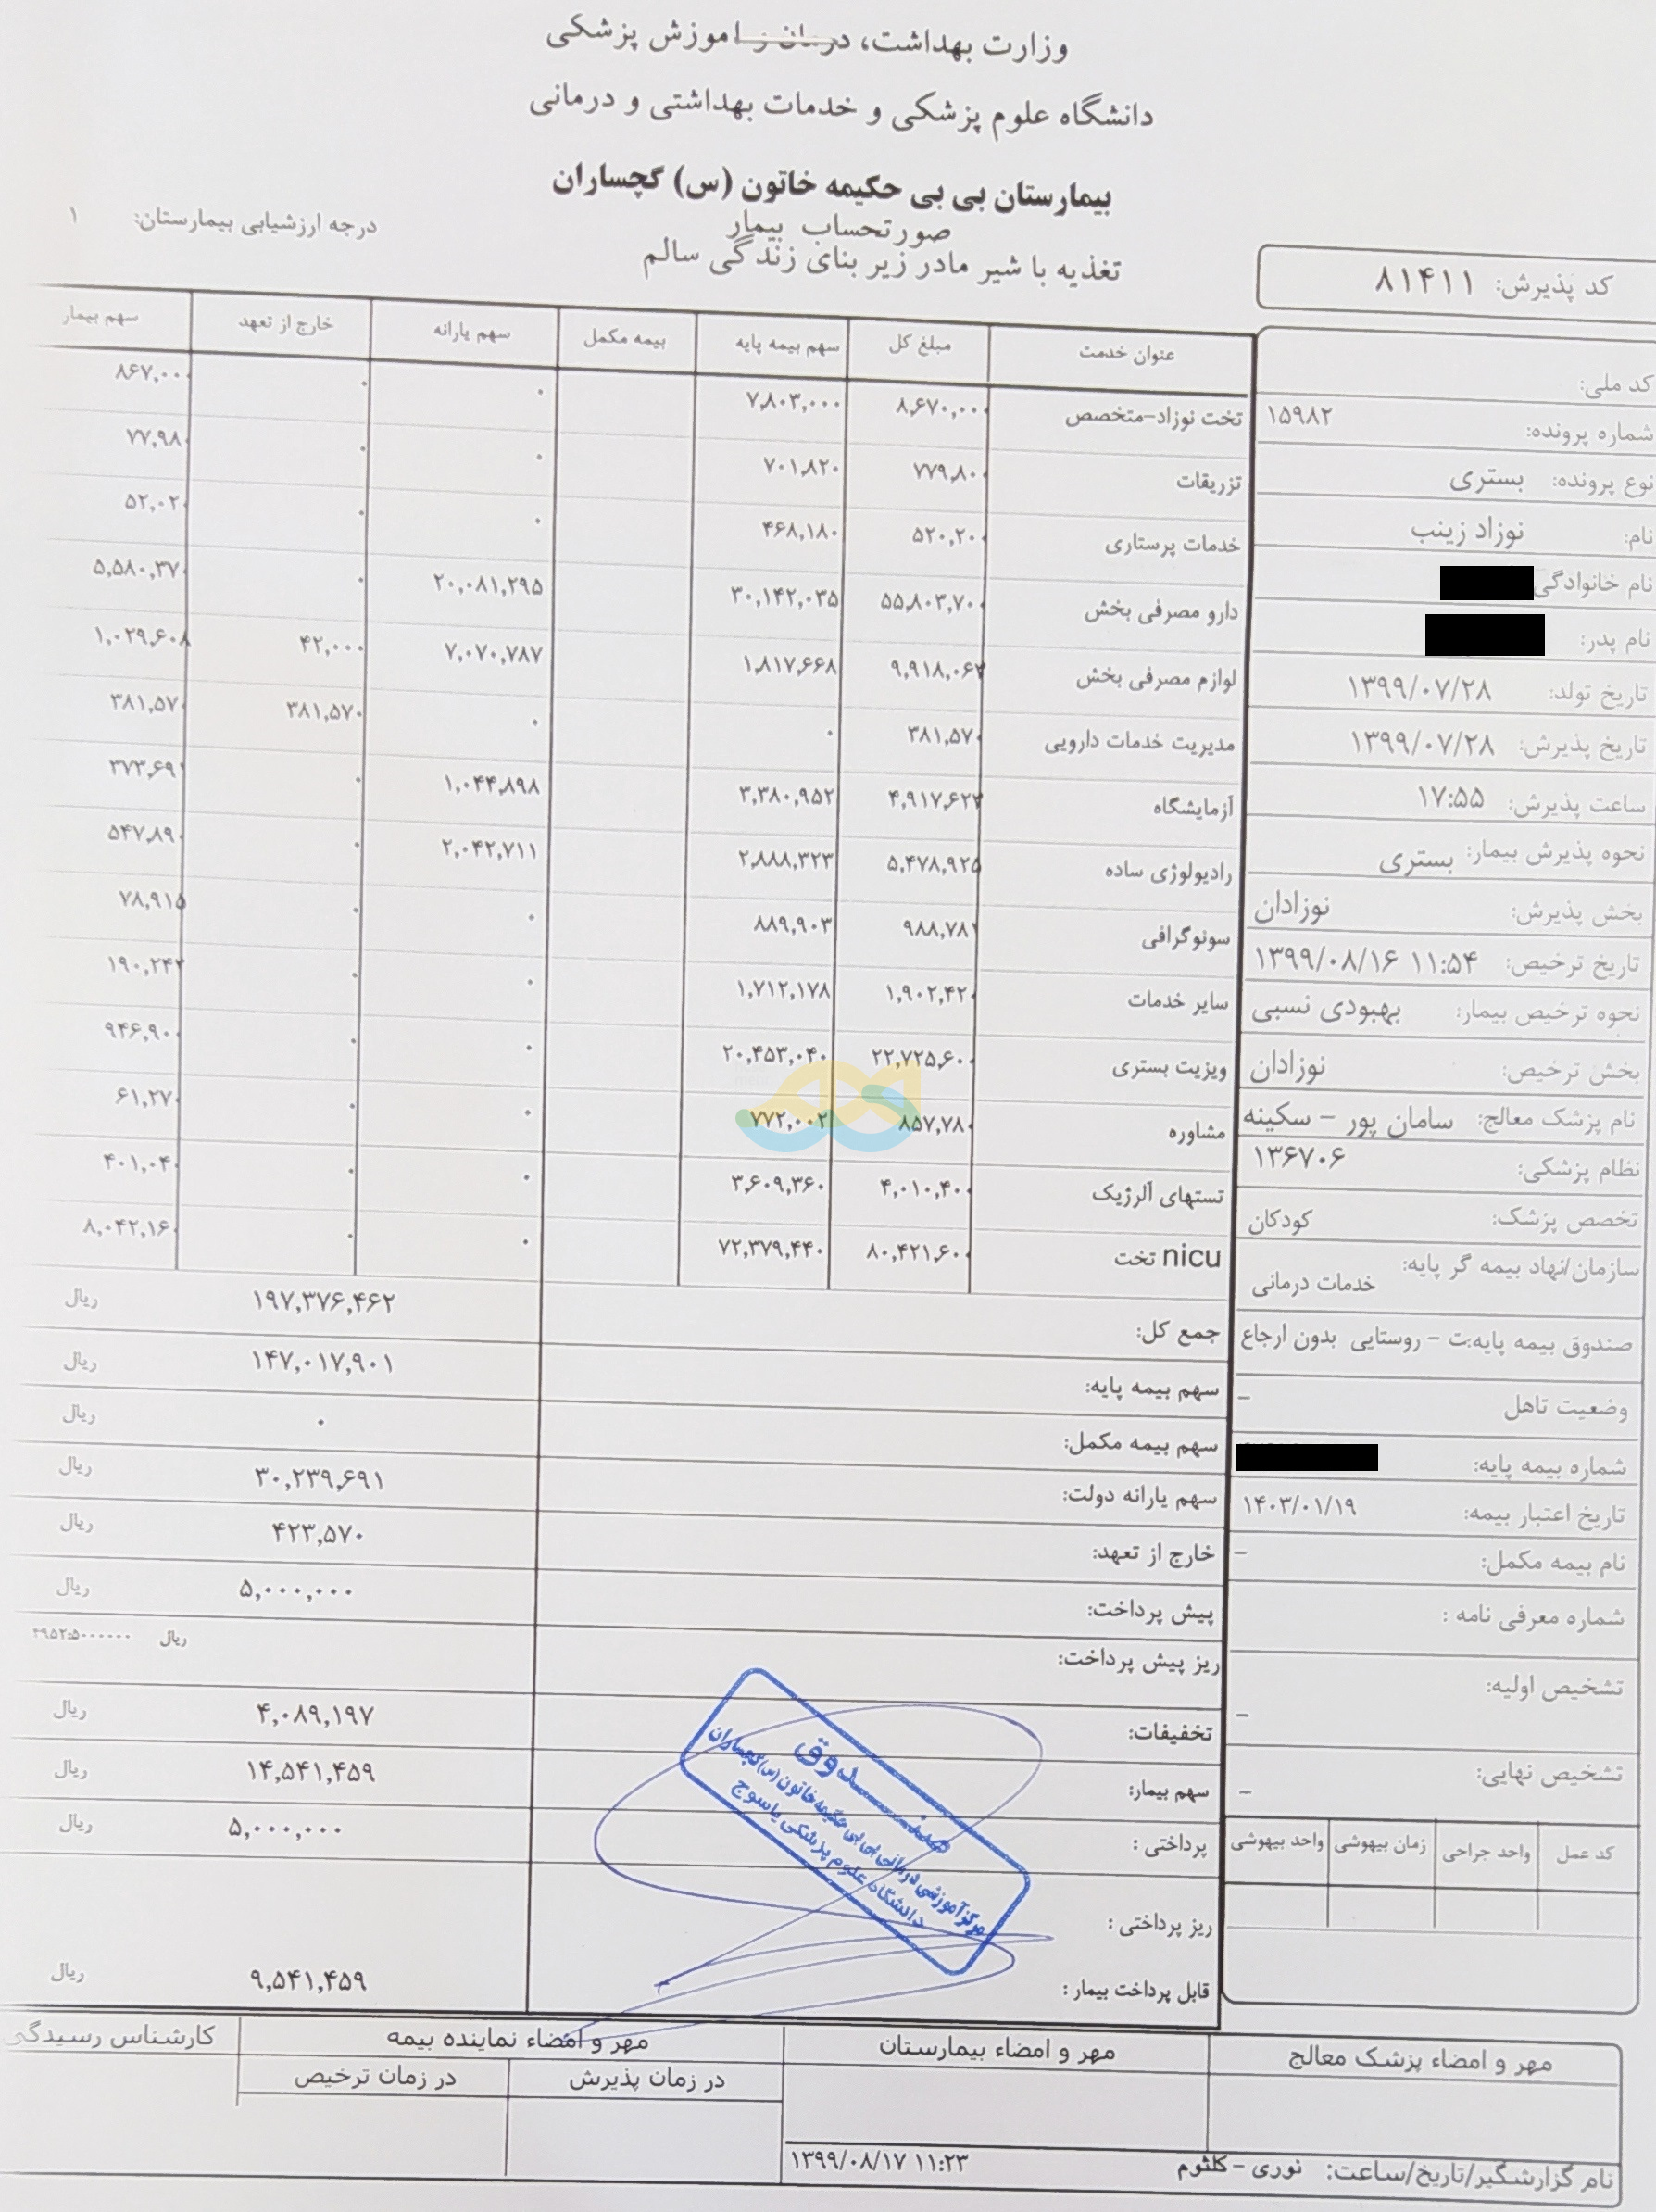 وزارت بهداشت، درمان و اموزش پزشکی
دانشگاه علوم پزشکی و خدمات بهداشتی و درمانی
بیمارستان بی بی حکیمه خاتون (س) گچساران
صورتحساب بیمار
درجه ارزشیابی بیمارستان: ۱
تغذیه با شیر مادر زیر بنای زندگی سالم
کد پذیرش: ۸۱۴۱۱
کد ملی:
شماره پرونده: ۱۵۹۸۲
نوع پرونده: بستری
نام: نوزاد زینب
نام خانوادگی
نام پدر:
تاریخ تولد: ۱۳۹۹/۰۷/۲۸
تاریخ پذیرش: ۱۳۹۹/۰۷/۲۸
ساعت پذیرش: ۱۷:۵۵
نحوه پذیرش بیمار: بستری
بخش پذیرش: نوزادان
تاریخ ترخیص: ۱۳۹۹/۰۸/۱۶ ۱۱:۵۴
نحوه ترخیص بیمار: بهبودی نسبی
بخش ترخیص: نوزادان
نام پزشک معالج: سامان پور - سکینه
نظام پزشکی: ۱۳۶۷۰۶
تخصص پزشک: کودکان
سازمان/نهاد بیمه گر پایه: خدمات درمانی
صندوق بیمه پایه:ت - روستایی بدون ارجاع
وضعیت تاهل -
شماره بیمه پایه:
تاریخ اعتبار بیمه: ۱۴۰۳/۰۱/۱۹
نام بیمه مکمل: -
شماره معرفی نامه :
تشخیص اولیه: -
تشخیص نهایی: -
کد عمل واحد جراحی زمان بیهوشی واحد بیهوشی
عنوان خدمت مبلغ کل سهم بیمه پایه بیمه مکمل سهم یارانه خارج از تعهد سهم بیمار
تخت نوزاد-متخصص ۸,۶۷۰,۰۰۰ ۷,۸۰۳,۰۰۰ ۰ ۰ ۸۶۷,۰۰۰
تزریقات ۷۷۹,۸۰۰ ۷۰۱,۸۲۰ ۰ ۰ ۷۷,۹۸۰
خدمات پرستاری ۵۲۰,۲۰۰ ۴۶۸,۱۸۰ ۰ ۰ ۵۲,۰۲۰
دارو مصرفی بخش ۵۵,۸۰۳,۷۰۰ ۳۰,۱۴۲,۰۳۵ ۲۰,۰۸۱,۲۹۵ ۰ ۵,۵۸۰,۳۷۰
لوازم مصرفی بخش ۹,۹۱۸,۰۶۳ ۱,۸۱۷,۶۶۸ ۷,۰۷۰,۷۸۷ ۴۲,۰۰۰ ۱,۰۲۹,۶۰۸
مدیریت خدمات دارویی ۳۸۱,۵۷۰ ۰ ۰ ۳۸۱,۵۷۰ ۳۸۱,۵۷۰
آزمایشگاه ۴,۹۱۷,۶۲۳ ۳,۳۸۰,۹۵۲ ۱,۰۴۴,۸۹۸ ۰ ۳۷۳,۶۹۱
رادیولوژی ساده ۵,۴۷۸,۹۲۵ ۲,۸۸۸,۳۲۳ ۲,۰۴۲,۷۱۱ ۰ ۵۴۷,۸۹۰
سونوگرافی ۹۸۸,۷۸۱ ۸۸۹,۹۰۳ ۰ ۰ ۷۸,۹۱۵
سایر خدمات ۱,۹۰۲,۴۲۰ ۱,۷۱۲,۱۷۸ ۰ ۰ ۱۹۰,۲۴۲
ویزیت بستری ۲۲,۷۲۵,۶۰۰ ۲۰,۴۵۳,۰۴۰ ۰ ۰ ۹۴۶,۹۰۰
مشاوره ۸۵۷,۷۸۰ ۷۷۲,۰۰۲ ۰ ۰ ۶۱,۲۷۰
تستهای آلرژیک ۴,۰۱۰,۴۰۰ ۳,۶۰۹,۳۶۰ ۰ ۰ ۴۰۱,۰۴۰
تخت nicu ۸۰,۴۲۱,۶۰۰ ۷۲,۳۷۹,۴۴۰ ۰ ۰ ۸,۰۴۲,۱۶۰
جمع کل: ۱۹۷,۳۷۶,۴۶۲ ریال
سهم بیمه پایه: ۱۴۷,۰۱۷,۹۰۱ ریال
سهم بیمه مکمل: ۰ ریال
سهم یارانه دولت: ۳۰,۲۳۹,۶۹۱ ریال
خارج از تعهد: ۴۲۳,۵۷۰ ریال
پیش پرداخت: ۵,۰۰۰,۰۰۰ ریال
ریز پیش پرداخت: ریال
تخفیفات: ۴,۰۸۹,۱۹۷ ریال
سهم بیمار: ۱۴,۵۴۱,۴۵۹ ریال
پرداختی : ۵,۰۰۰,۰۰۰ ریال
ریز پرداختی :
قابل پرداخت بیمار : ۹,۵۴۱,۴۵۹ ریال
صندوق
مرکز آموزشی درمانی بی بی حکیمه خاتون (س) گچساران
دانشگاه علوم پزشکی یاسوج
مهر و امضاء پزشک معالج مهر و امضاء بیمارستان مهر و امضاء نماینده بیمه کارشناس رسیدگی
در زمان پذیرش در زمان ترخیص
نام گزارشگیر/تاریخ/ساعت: نوری - کلثوم ۱۳۹۹/۰۸/۱۷ ۱۱:۲۳